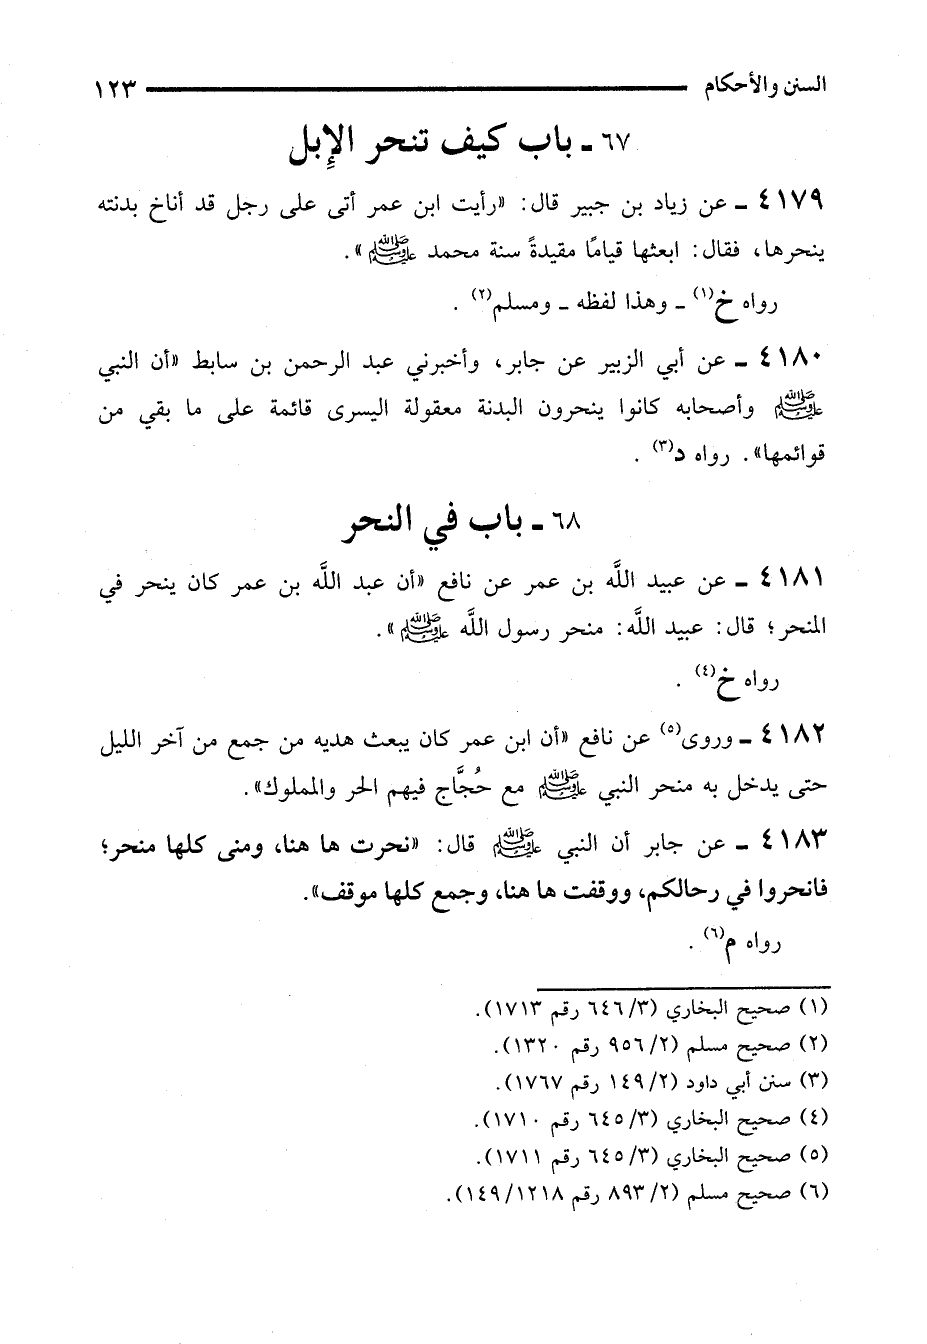 السنن والأحكام ١٢٣
٦٧ ـ باب كيف تنحر الإبل
٤١٧٩ ـ عن زياد بن جبير قال: «رأيت ابن عمر أتى على رجل قد أناخ بدنته
ينحرها، فقال: ابعثها قيامًا مقيدةً سنة محمد ﷺ».
رواه خ(١) ـ وهذا لفظه ـ ومسلم(٢) .
٤١٨٠ ـ عن أبي الزبير عن جابر، وأخبرني عبد الرحمن بن سابط «أن النبي
ﷺ وأصحابه كانوا ينحرون البدنة معقولة اليسرى قائمة على ما بقي من
قوائمها». رواه د(٣) .
٦٨ ـ باب في النحر
٤١٨١ ـ عن عبيد اللَّه بن عمر عن نافع «أن عبد اللَّه بن عمر كان ينحر في
المنحر؛ قال: عبيد اللَّه: منحر رسول اللَّه ﷺ».
رواه خ(٤) .
٤١٨٢ ـ وروى(٥) عن نافع «أن ابن عمر كان يبعث هديه من جمع من آخر الليل
حتى يدخل به منحر النبي ﷺ مع حُجَّاج فيهم الحر والمملوك».
٤١٨٣ ـ عن جابر أن النبي ﷺ قال: «نحرت ها هنا، ومنى كلها منحر؛
فانحروا في رحالكم، ووقفت ها هنا، وجمع كلها موقف».
رواه م(٦) .
(١) صحيح البخاري (٣/ ٦٤٦ رقم ١٧١٣).
(٢) صحيح مسلم (٢/ ٩٥٦ رقم ١٣٢٠).
(٣) سنن أبي داود (٢/ ١٤٩ رقم ١٧٦٧).
(٤) صحيح البخاري (٣/ ٦٤٥ رقم ١٧١٠).
(٥) صحيح البخاري (٣/ ٦٤٥ رقم ١٧١١).
(٦) صحيح مسلم (٢/ ٨٩٣ رقم ١٢١٨/ ١٤٩).